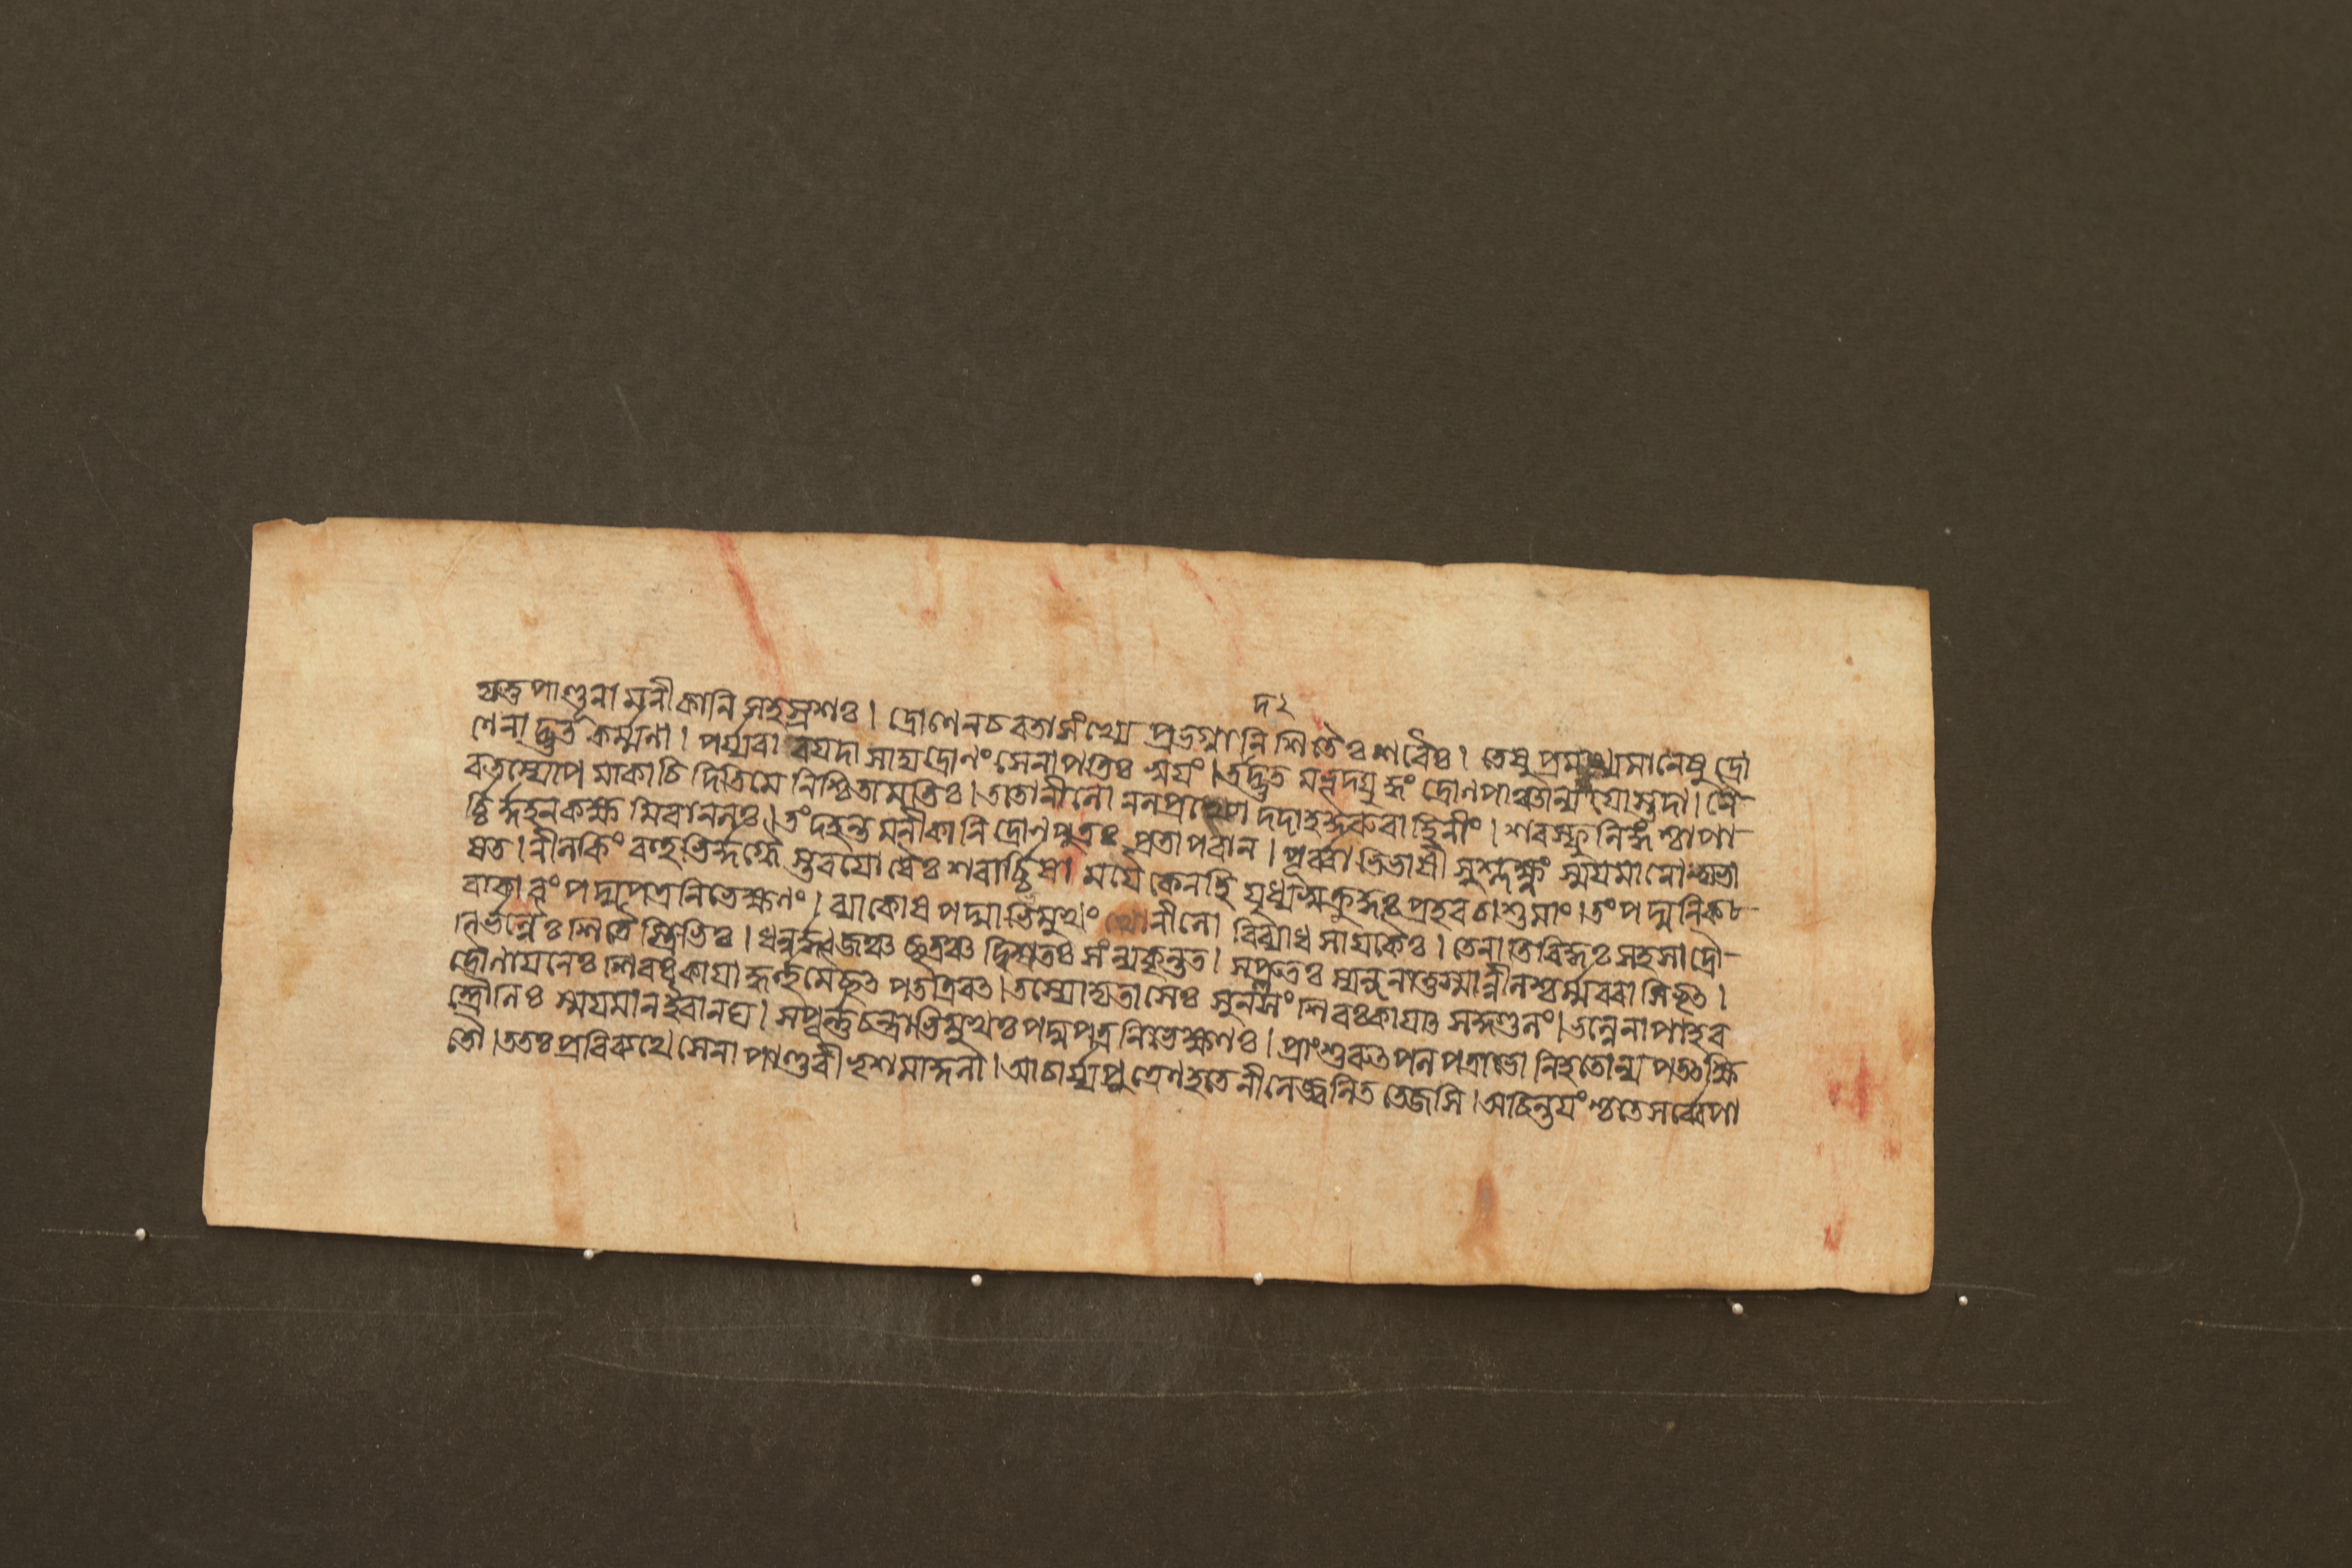 দ২
য়ত্তপাণ্ডূনামনীকানি সহস্রশঃ। দ্রোণেনচৰতাসংখ্যে প্রভগ্নানি শিতৈঃ শৰৈঃ। তেষু প্রমথ্যমানেষু দ্রো
ণেনাদ্ভুতকর্ম্মণা। পর্য্যবাৰয়দাসাদ্যদ্রোণং সেনাপতিঃ স্বয়ং। তদদ্ভুতমভূদযুদ্ধং দ্রোণপাঞ্চাল্যয়োস্তদা। নৈ-
ৱতস্যোপমাকাচিদিতিমে নিশ্চিতামতিঃ। ততোনীলোঽনলপ্রখ্যো দদাহকুৰুবাহিনীং। শৰস্ফুলিঙ্গশ্চাপা-
র্চ্চির্দ্দহনকক্ষমিবানলঃ। তংদহন্তমনীকানি দ্রোণপুত্রঃ প্রতাপবান। পূর্ব্বাভিভাষী সুশ্লক্ষ্ণং স্ময়মানোভ্যভা
ষত। নীলকিং বহুভির্দ্দগ্ধৈস্তবয়োধৈঃ শৰার্চ্চিষা। ময়ৈকেনহি যুধ্যস্বক্রুদ্ধঃ প্রহৰচাশুমাং। তংপদ্মনিকৰা
ৰাকাৰং পদ্মপত্রনিভেক্ষণং। ব্যাকোষপদ্মাভিমুখং নীলো বিব্যাধসায়কৈঃ। তেনাতিবিদ্ধঃ সহসা দ্রৌ-
নির্ভল্লৈঃ শিতৈস্ত্রিভিঃ। ধনুর্দ্ধ্বজঞ্চ ছত্রঞ্চ দ্বিষতঃ সংন্যকৃন্তত। সপ্লুতঃ স্যন্দনাত্তস্মান্নীলশ্চর্ম্মবৰাসিধৃৎ।
দ্রৌণায়নেঃ শিৰঃ কায়াদ্ধর্ত্তুমৈচ্ছৎ পতত্রিবৎ। তস্যোদ্যতাসেঃ সুনসং শিৰঃকায়াৎ সকুণ্ডলং। ভল্লেনাপাহৰ
দ্দ্রৌনিঃ স্ময়মানইবানঘ। সংপূর্ণচন্দ্রাভিমুখঃ পদ্মপত্রনিভেক্ষণঃ। প্রাংশুৰুৎপলপত্রাভো নিহতোন্যপতৎক্ষি
তৌ। ততঃপ্রবিব্যথে সেনা পাণ্ডবীভৃশমাকুলা। আচার্য্যপুত্রেণহতে নীলেজ্জ্বলিততেজসি। অচিন্তয়ংশ্চতেসর্ব্বেপা